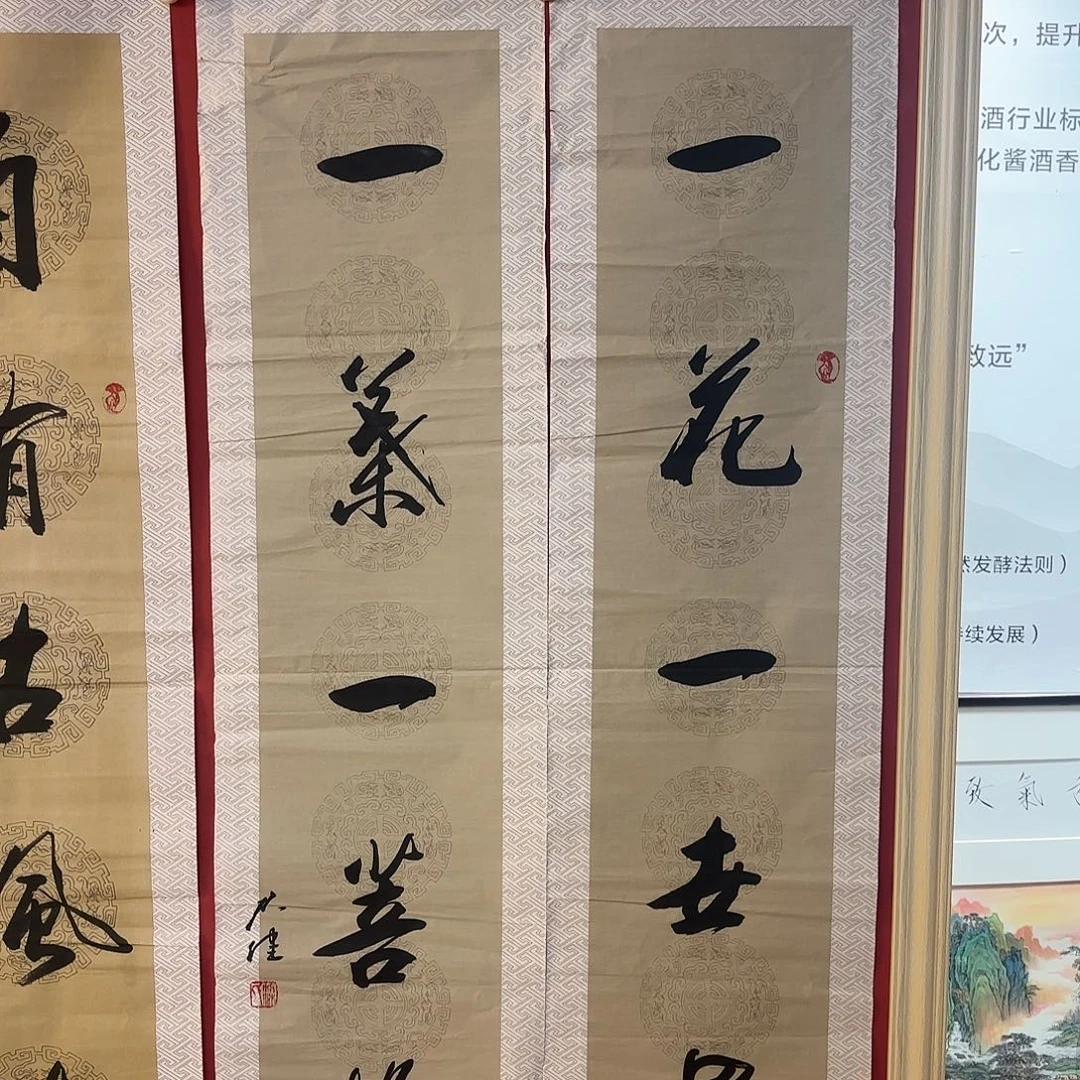 一花一世
一葉一菩
有古風
次，提升
酒行业标
化酱酒香
致远”
然发酵法则）
持续发展）
致氣